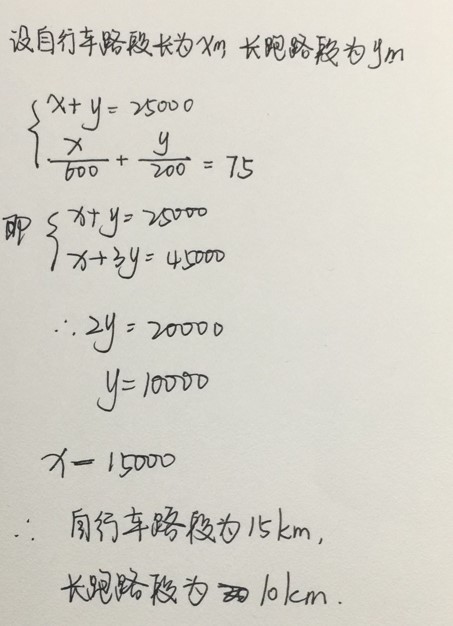 设自行车路段长为xm 长跑路段为ym
{ x+y=25000
x/600 + y/200 = 75
即 { x+y=25000
x+3y=45000
∴ 2y=20000
y=10000
x=15000
∴ 自行车路段为15km,
长跑路段为 10km.